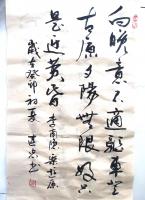 向晚意不適驱車登
古原夕陽無限好只
是近黄昏 李商隐樂遊原
歲在癸卯初夏